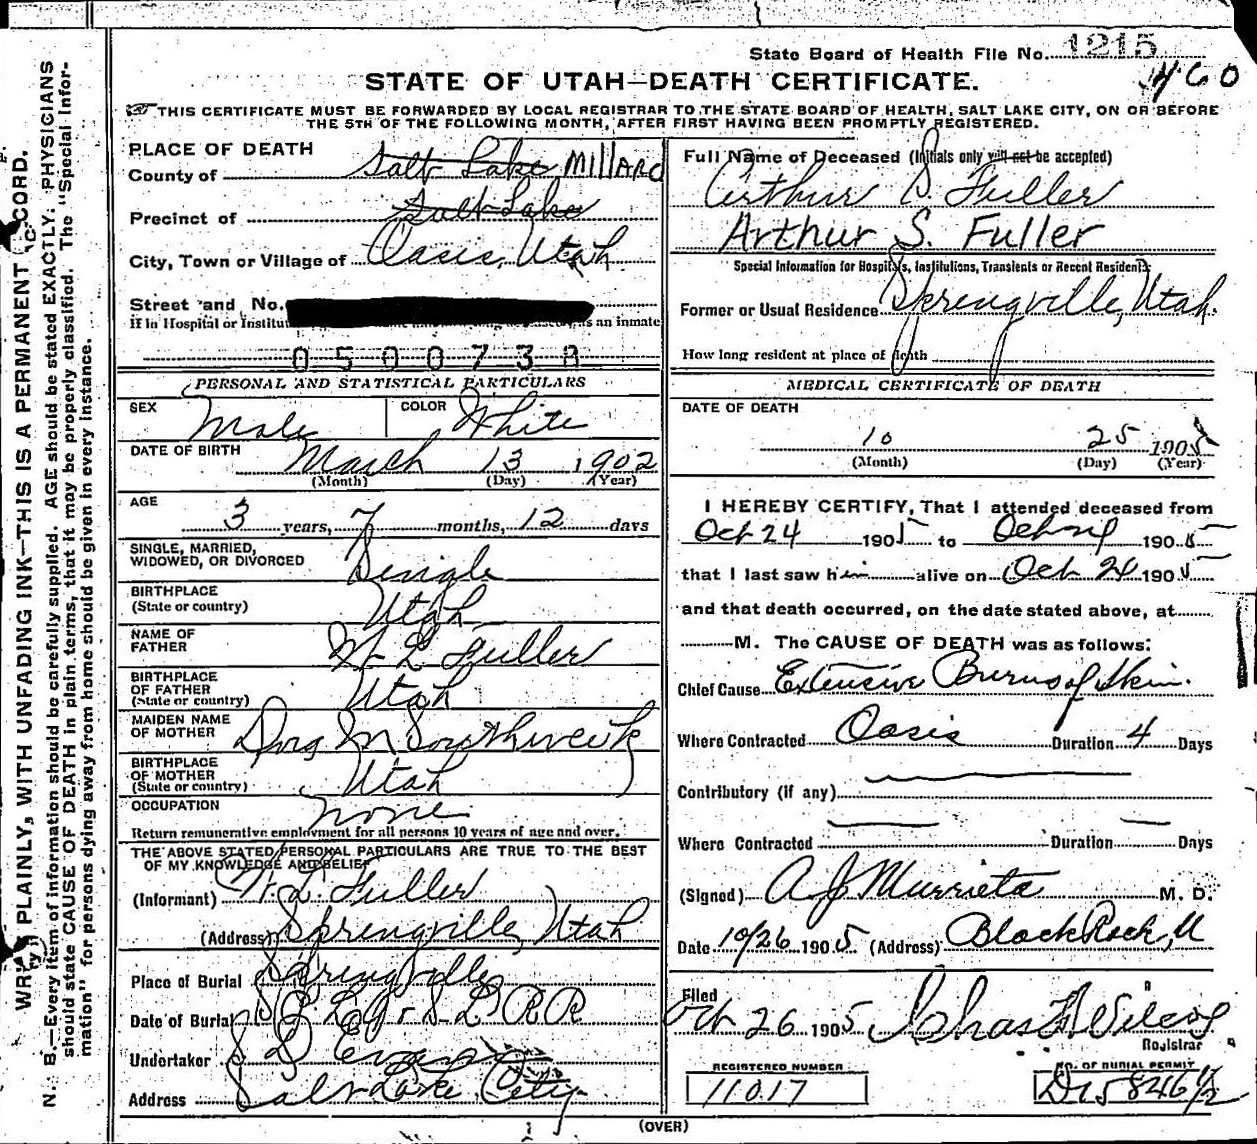 State Board of Health File No. 1215
460
STATE OF UTAH—DEATH CERTIFICATE.
THIS CERTIFICATE MUST BE FORWARDED BY LOCAL REGISTRAR TO THE STATE BOARD OF HEALTH, SALT LAKE CITY, ON OR BEFORE
THE 5TH OF THE FOLLOWING MONTH, AFTER FIRST HAVING BEEN PROMPTLY REGISTERED.
PLACE OF DEATH
County of Salt Lake MillARd
Precinct of Salt Lake
City, Town or Village of Oasis, Utah
Street and No.
If in Hospital or Institut as an inmate
0500738
PERSONAL AND STATISTICAL PARTICULARS
SEX Male COLOR White
DATE OF BIRTH March 13 1902
(Month) (Day) (Year)
AGE
3 years, 7 months, 12 days
SINGLE, MARRIED,
WIDOWED, OR DIVORCED Single
BIRTHPLACE
(State or country) Utah
NAME OF
FATHER W L Fuller
BIRTHPLACE
OF FATHER
(State or country) Utah
MAIDEN NAME
OF MOTHER Dora M
BIRTHPLACE
OF MOTHER
(State or country) Utah
OCCUPATION none
Return remunerative employment for all persons 10 years of age and over.
THE ABOVE STATED PERSONAL PARTICULARS ARE TRUE TO THE BEST
OF MY KNOWLEDGE AND BELIEF
(Informant) W. L. Fuller
(Address) Springville, Utah
Place of Burial Springville
Date of Burial
Undertaker S D Evans
Address Salt Lake City
Full Name of Deceased (Initials only will not be accepted)
Arthur S. Fuller
Arthur S. Fuller
Special Information for Hospitals, Institutions, Transients or Recent Residents
Former or Usual Residence Springville, Utah.
How long resident at place of death
MEDICAL CERTIFICATE OF DEATH
DATE OF DEATH
10 25 1905
(Month) (Day) (Year)
I HEREBY CERTIFY, That I attended deceased from
Oct 24 1905 to 1905
that I last saw him alive on Oct 24 1905
and that death occurred, on the date stated above, at
M. The CAUSE OF DEATH was as follows:
Chief Cause Extensive Burns of Skin.
Where Contracted Oasis Duration 4 Days
Contributory (if any)
Where Contracted Duration — Days
(Signed) A J Murrieta M. D.
Date 10/26 1905 (Address) Black Rock, U
Filed
Oct 26 1905 Chas F Wilcox
Registrar
REGISTERED NUMBER
11017
NO. OF BURIAL PERMIT
D15846 1/2
(OVER)
WRITE PLAINLY, WITH UNFADING INK—THIS IS A PERMANENT RECORD.
N. B.—Every item of information should be carefully supplied. AGE should be stated EXACTLY. PHYSICIANS
should state CAUSE OF DEATH in plain terms, that it may be properly classified. The "Special Infor-
mation" for persons dying away from home should be given in every instance.